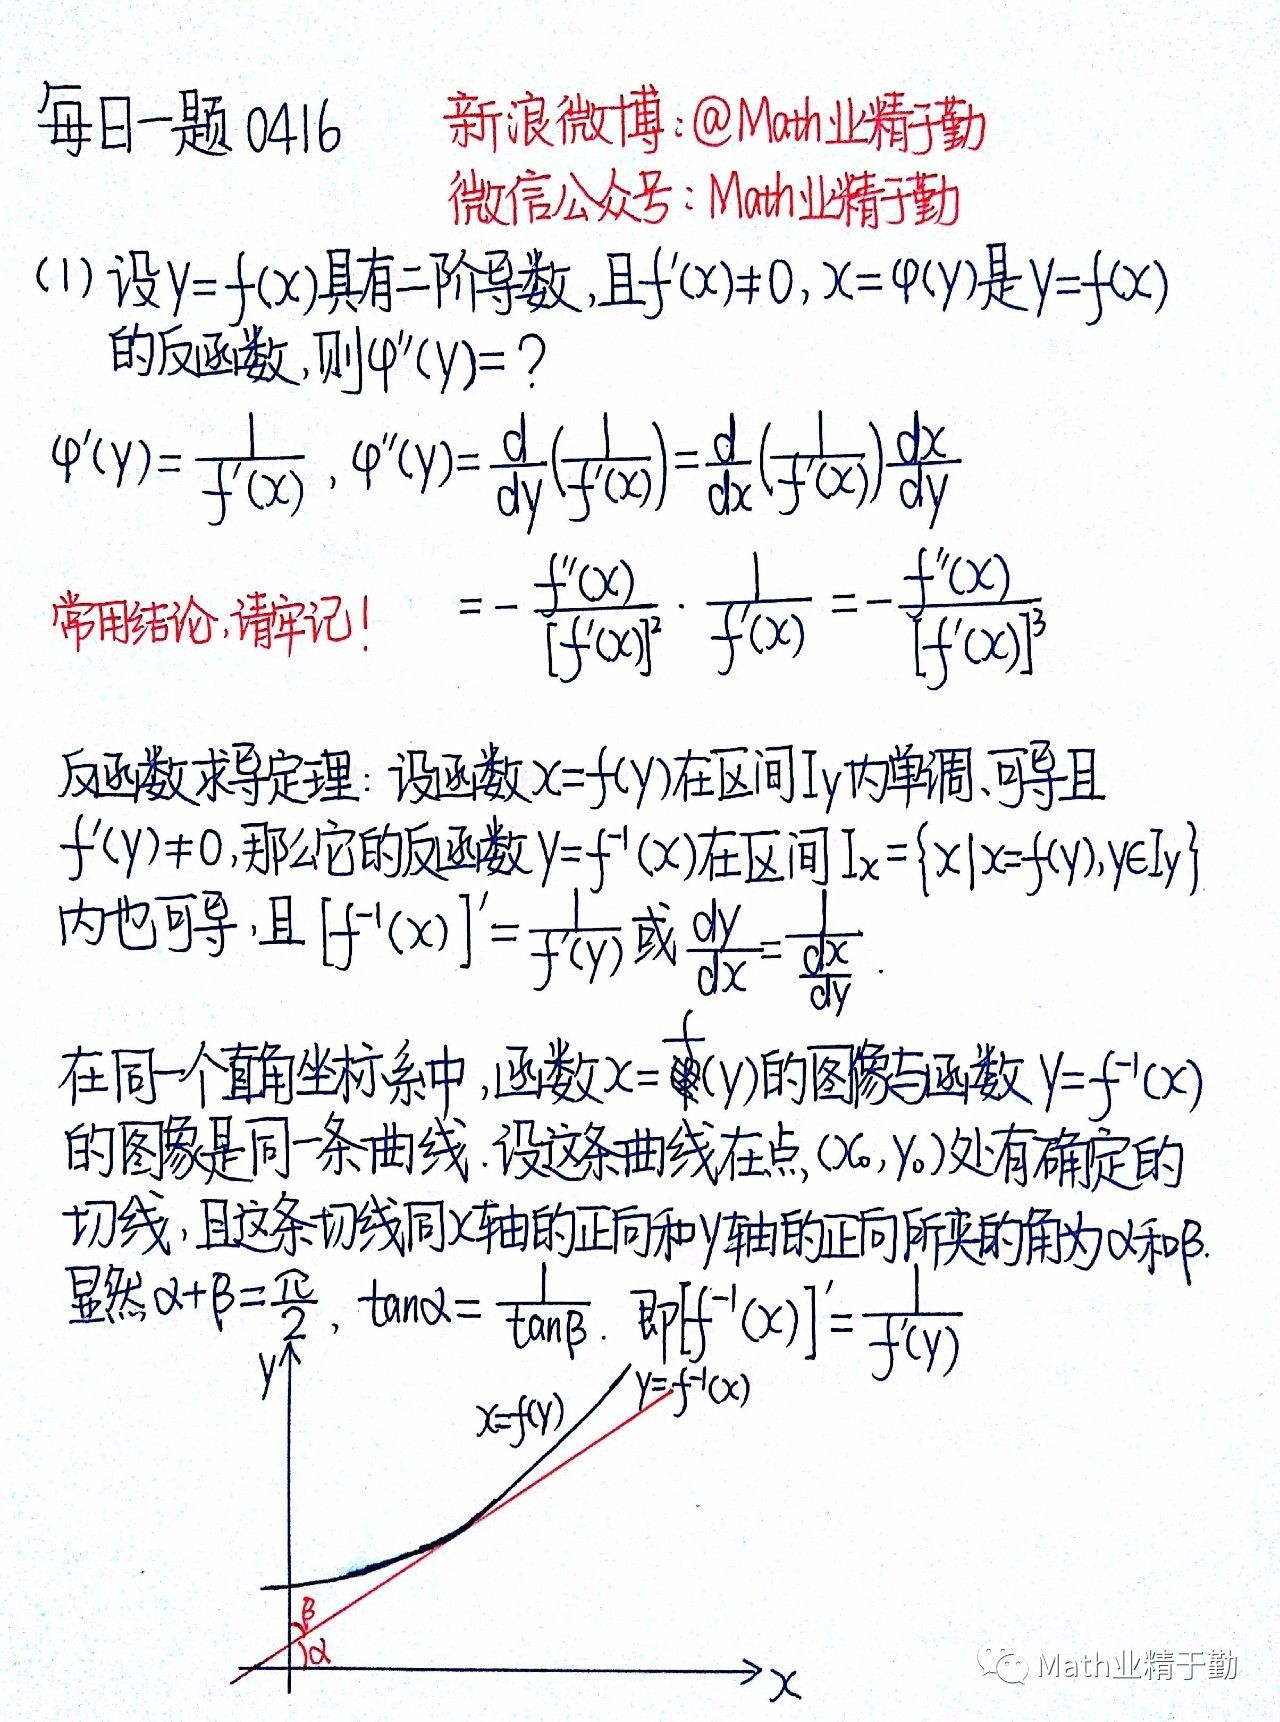 每日一题 0416
新浪微博:@Math业精于勤
微信公众号:Math业精于勤
(1) 设y=f(x)具有二阶导数,且f'(x)≠0, x=φ(y)是y=f(x)
的反函数,则φ''(y)=?
φ'(y)=1/f'(x), φ''(y)=d/dy(1/f'(x))=d/dx(1/f'(x))dx/dy
=-f''(x)/[f'(x)]²·1/f'(x)=-f''(x)/[f'(x)]³
常用结论,请牢记!
反函数求导定理:设函数x=f(y)在区间Iy内单调、可导且
f'(y)≠0,那么它的反函数y=f⁻¹(x)在区间Ix={x|x=f(y),y∈Iy}
内也可导,且[f⁻¹(x)]'=1/f'(y)或dy/dx=1/(dx/dy).
在同一个直角坐标系中,函数x=f(y)的图像与函数y=f⁻¹(x)
的图象是同一条曲线.设这条曲线在点(x₀,y₀)处有确定的
切线,且这条切线同x轴的正向和y轴的正向所夹的角为α和β.
显然α+β=π/2, tanα=1/tanβ. 即[f⁻¹(x)]'=1/f'(y)
y
x=f(y)
y=f⁻¹(x)
β
α
x
Math业精于勤